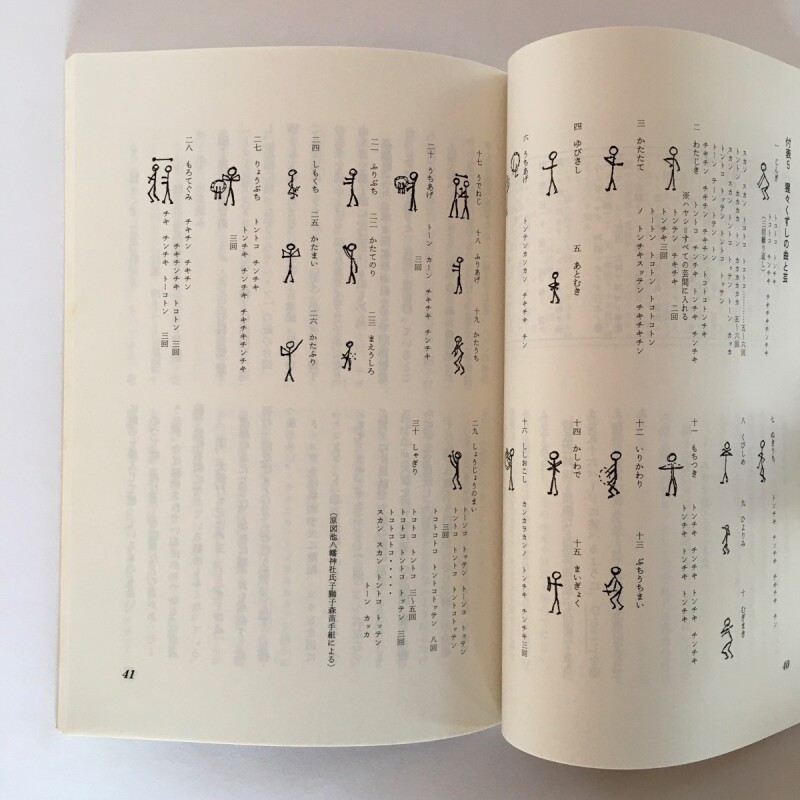 付表5 猩々くずしの曲と芸
一 こしぎ
トコトコ チンチキ チキチキチンチキ
(三回繰り返し)
スカン スカン トコトコ トコトコ……五〜六回
二 わたじき
※ハヤシ=すべての芸間に入れる
トンチキ チンチキ 二回
トンチキ三回
トートン トントコ トコトコトン
三 かたたて
ノ トンチキスッテン チキチキチン
四 ゆびさし
五 あとむき
六 うちあげ
トンテンカンカン チキチキ チン
七 ぬきうち
トンチキ チンチキ チキチキ チン
八 くびしめ
九 ひよりみ
十 むぎまき
十一 もちつき
トンチキ トンチキ トンチキ チンチキ
トンチキ トンチキ トンチキ
十二 いりかわり
十三 ぶちうちまい
十四 かしわで
十五 まいぎょく
十六 ししおこし
カンカラカンノ トンチキ チンチキ三回
40
十七 うでねじ
十八 ふりあげ
十九 かたうち
二十 うちあげ
トーン カーン チキチキ チンチキ
三回
二一 ふりぶち
二二 かたてのり
二三 まえうしろ
二四 しもくち
二五 かたまい
二六 かたふり
二七 りょうぶち
トントコ チンチキ
トンチキ チンチキ チキチキチンチキ
三回
二八 もろてぐみ
チキチン チキチン
チキチンチキ トコトン 三回
チキ チンチキ トーコトン 三回
二九 しょうじょうのまい
トーンコ トッテン トーンコ トッテン
トントコ トントコ トントコトッテン
三回
トコトコ トントコトッテン 八回
三十 しゃぎり
トコトコ トントコ 三〜五回
トコトコ トントコ トッテン 三回
トコトコトコ・・・・・
スカン スカン トントコ トッテン
トーン カッカ
(原図池八幡神社氏子獅子森苗手組による)
41